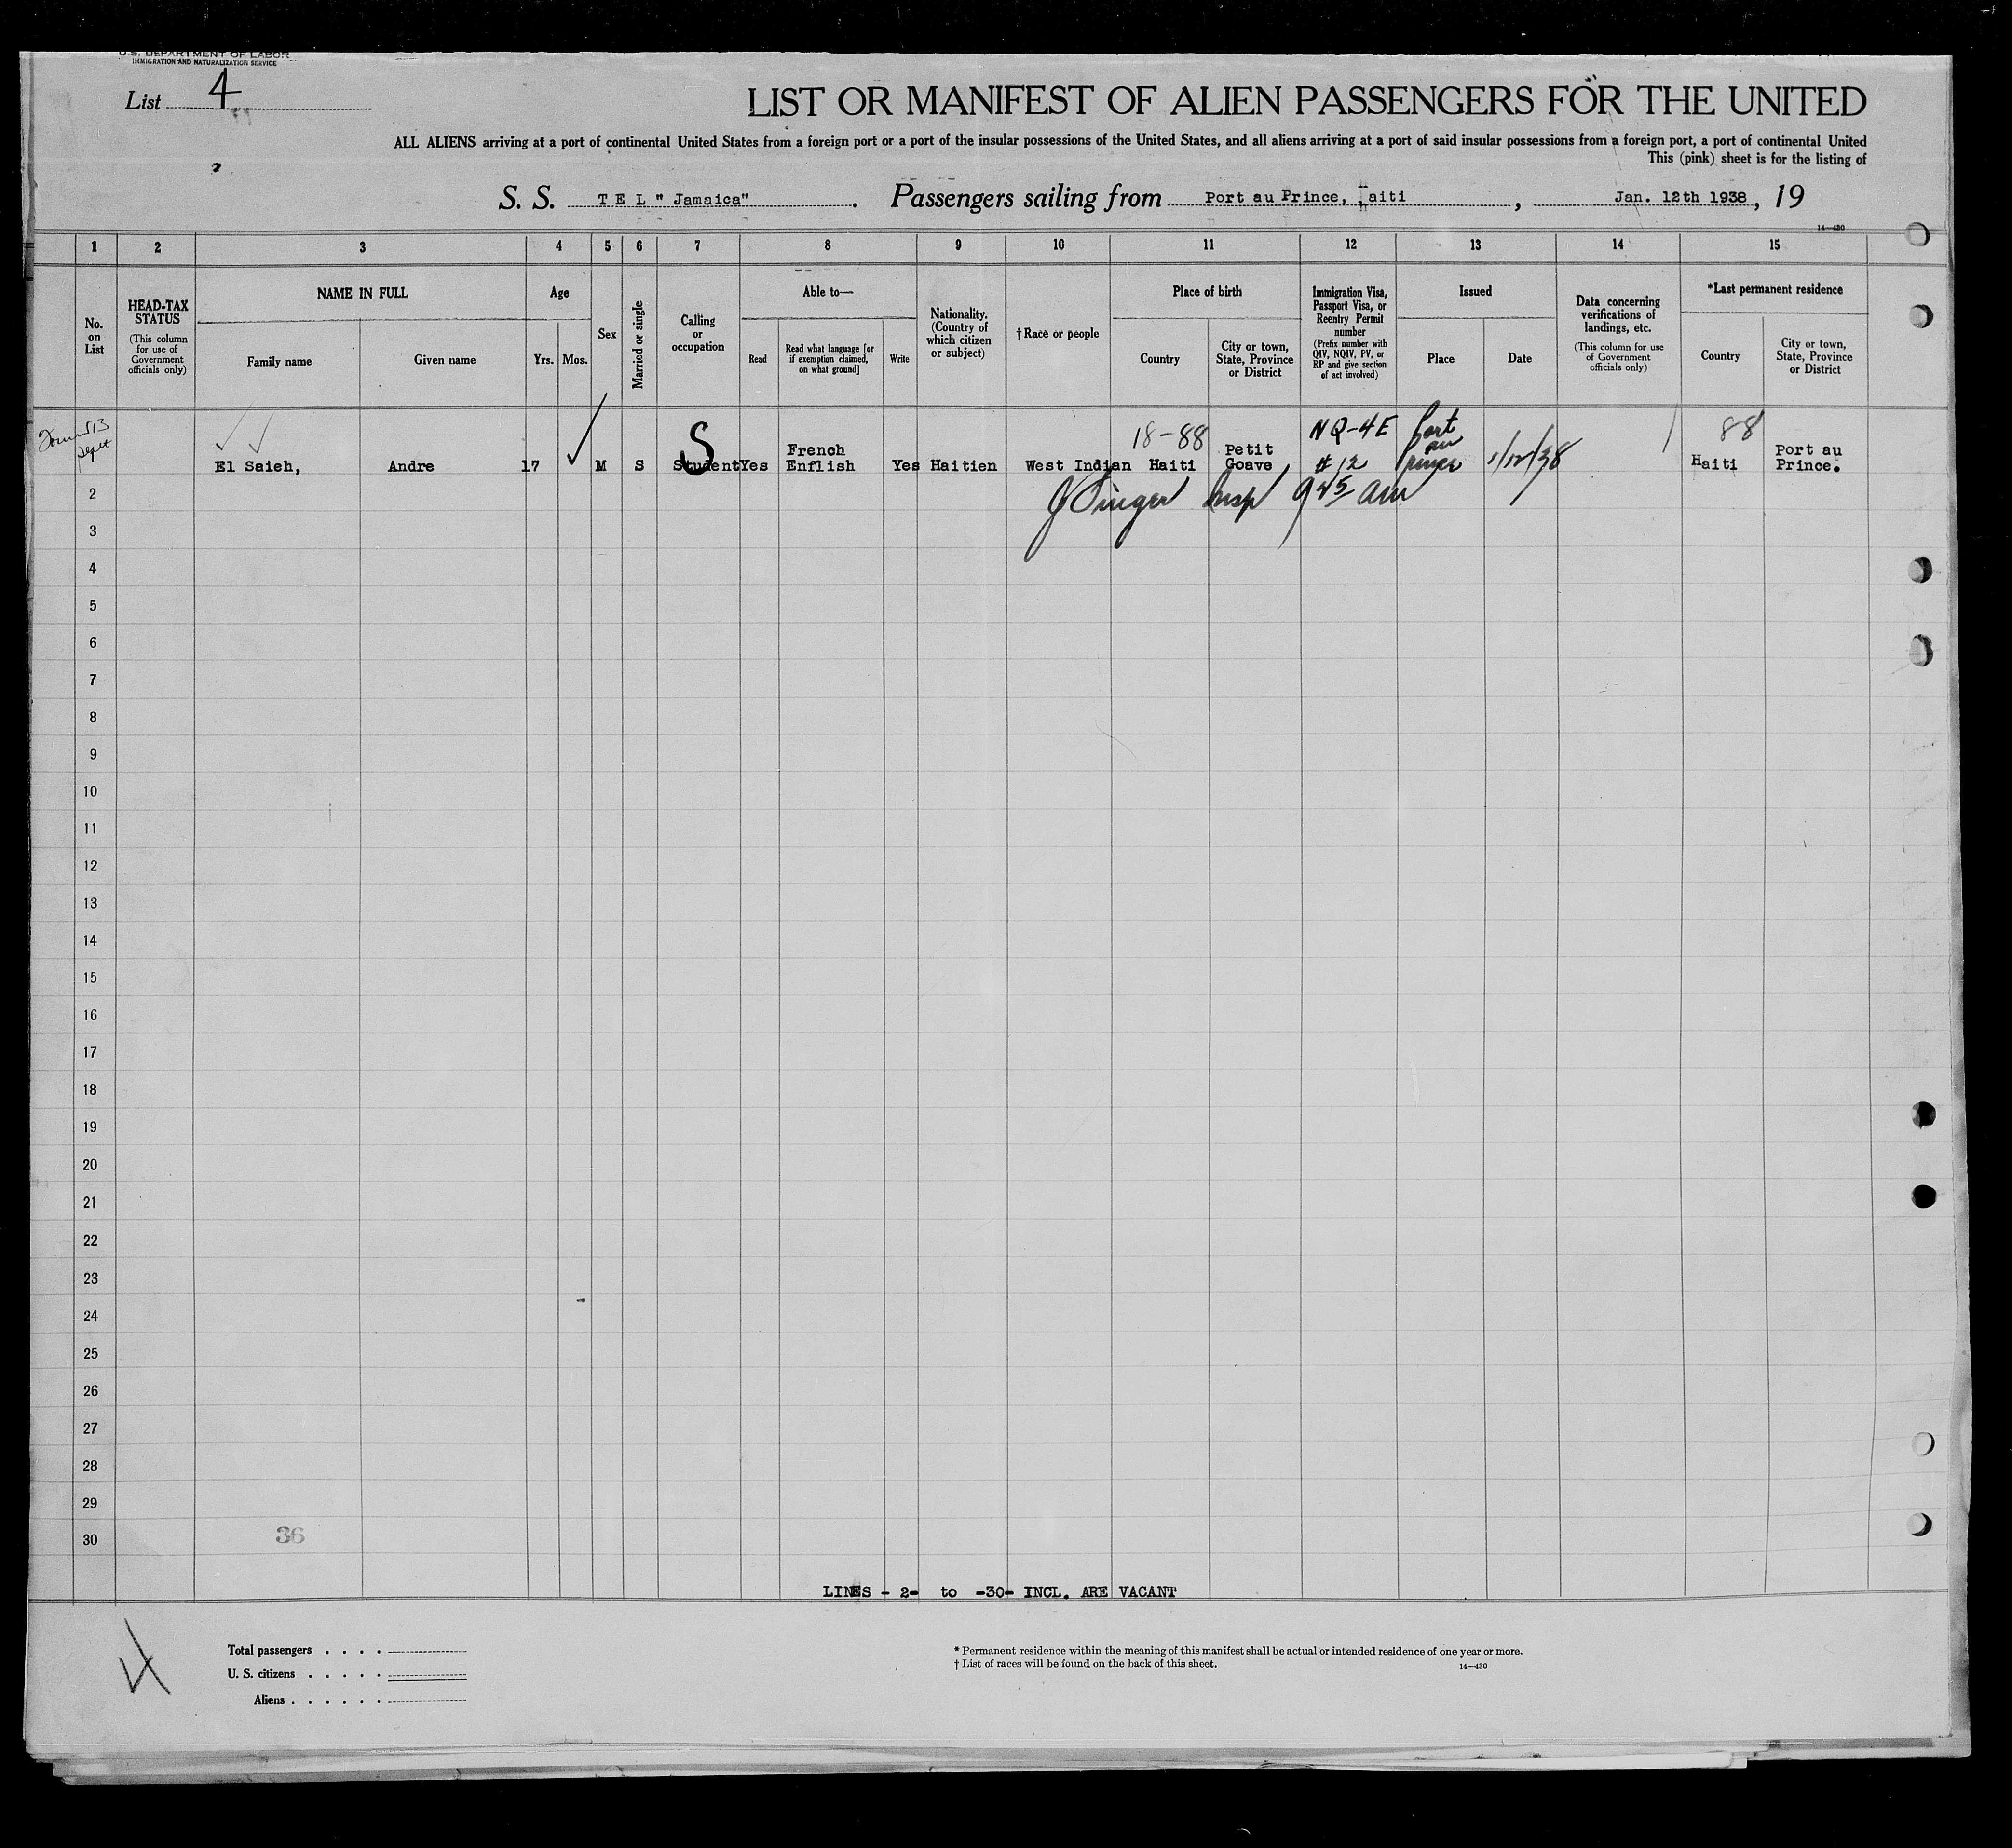 U.S. DEPARTMENT OF LABOR
IMMIGRATION AND NATURALIZATION SERVICE
List 4
LIST OR MANIFEST OF ALIEN PASSENGERS FOR THE UNITED
ALL ALIENS arriving at a port of continental United States from a foreign port or a port of the insular possessions of the United States, and all aliens arriving at a port of said insular possessions from a foreign port, a port of continental United
This (pink) sheet is for the listing of
S. S. T E L " Jamaica" . Passengers sailing from Port au Prince, Haiti , Jan. 12th 1938 , 19
14—430
1 2 3 4 5 6 7 8 9 10 11 12 13 14 15
No. on List
HEAD-TAX STATUS
(This column for use of Government officials only)
NAME IN FULL
Family name
Given name
Age
Yrs. Mos.
Sex
Married or single
Calling or occupation
Able to—
Read
Read what language [or if exemption claimed, on what ground]
Write
Nationality. (Country of which citizen or subject)
† Race or people
Place of birth
Country
City or town, State, Province or District
Immigration Visa, Passport Visa, or Reentry Permit number
(Prefix number with QIV, NQIV, PV, or RP and give section of act involved)
Issued
Place
Date
Data concerning verifications of landings, etc.
(This column for use of Government officials only)
*Last permanent residence
Country
City or town, State, Province or District
El Saieh, Andre 17 M S Student S Yes French Enflish Yes Haitien West Indian 18-88 Haiti Petit Goave NQ-4E #12 Port au Prince 1/12/38 88 Haiti Port au Prince.
2 J Singer Insp 9 45 am
3
4
5
6
7
8
9
10
11
12
13
14
15
16
17
18
19
20
21
22
23
24
25
26
27
28
29
30 36
LINES - 2- to -30- INCL. ARE VACANT
Total passengers . . . .
U. S. citizens . . . . .
Aliens . . . . . .
* Permanent residence within the meaning of this manifest shall be actual or intended residence of one year or more.
† List of races will be found on the back of this sheet.
14—430